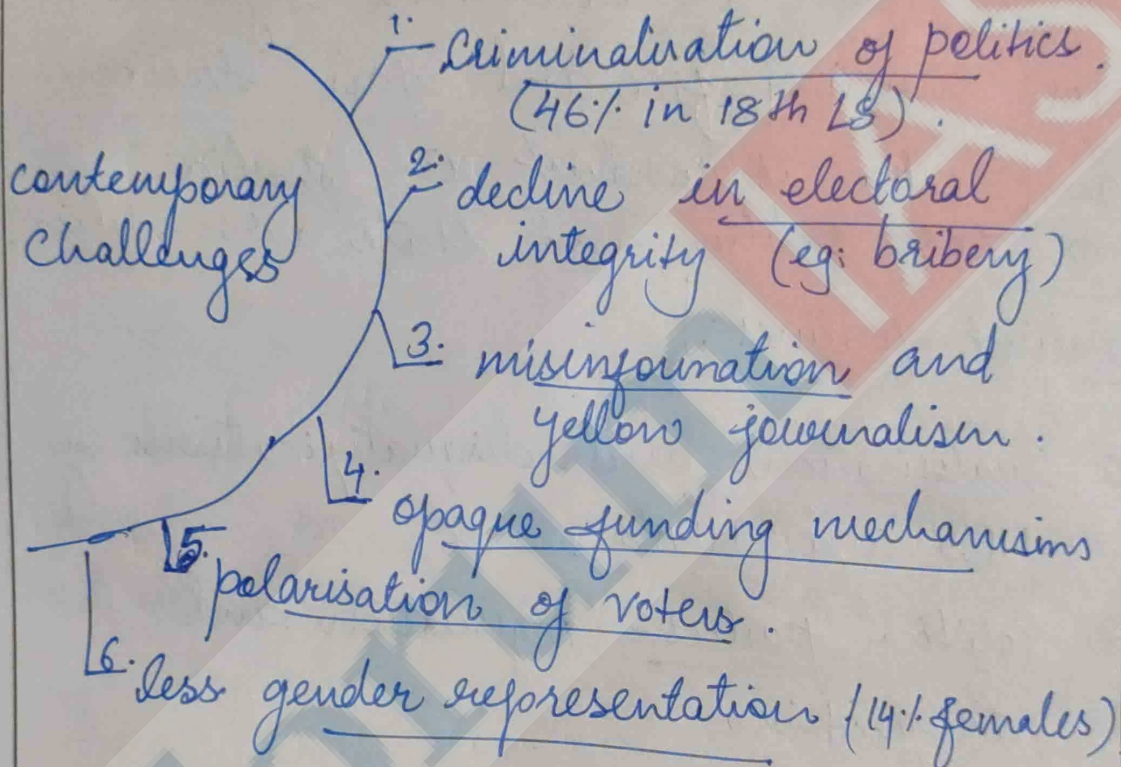 contemporary
Challenges
1. Criminalisation of politics.
(46% in 18th LS).
2. decline in electoral
integrity (eg: bribery)
3. misinformation and
yellow journalism.
4. opaque funding mechanisms
5. polarisation of voters.
6. less gender representation (14% females)
IAS